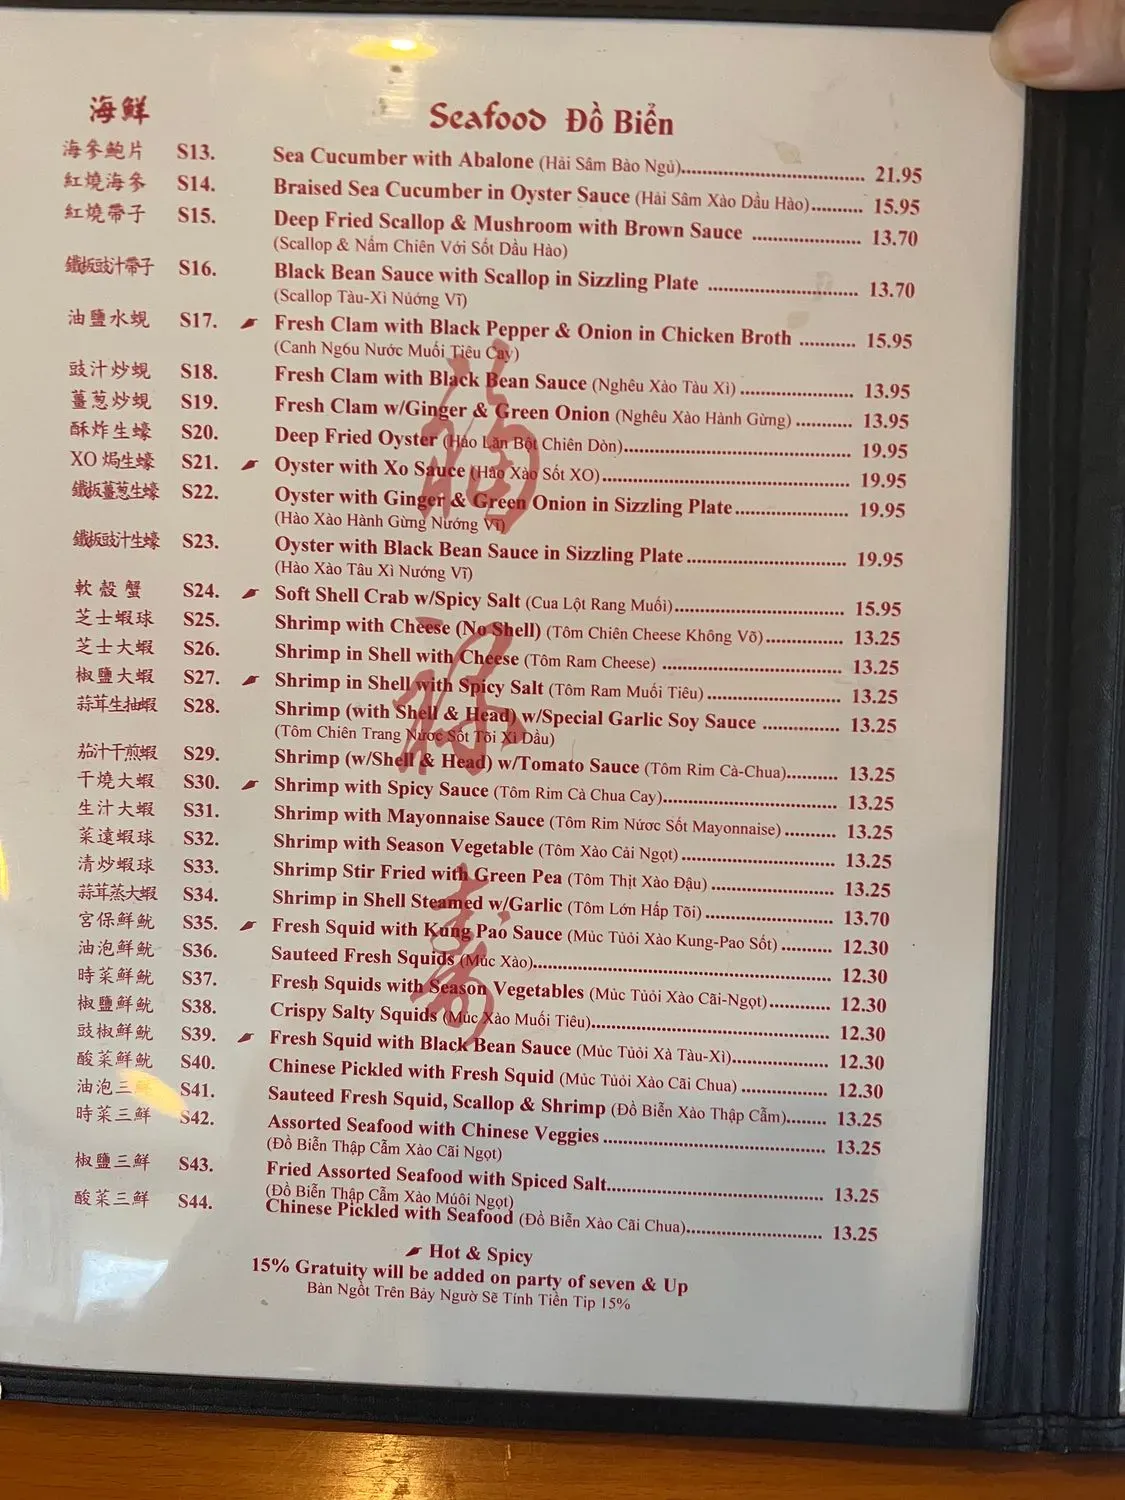 海鮮 Seafood Đồ Biển
海參鮑片 S13. Sea Cucumber with Abalone (Hải Sâm Bào Ngủ) 21.95
紅燒海參 S14. Braised Sea Cucumber in Oyster Sauce (Hải Sâm Xào Dầu Hào) 15.95
紅燒帶子 S15. Deep Fried Scallop & Mushroom with Brown Sauce 13.70
(Scallop & Nấm Chiên Với Sốt Dầu Hào)
鐵板豉汁帶子 S16. Black Bean Sauce with Scallop in Sizzling Plate 13.70
(Scallop Tàu-Xì Nướng Vĩ)
油鹽水蜆 S17. Fresh Clam with Black Pepper & Onion in Chicken Broth 15.95
(Canh Ng6u Nước Muối Tiêu Cay)
豉汁炒蜆 S18. Fresh Clam with Black Bean Sauce (Nghêu Xào Tàu Xì) 13.95
薑葱炒蜆 S19. Fresh Clam w/Ginger & Green Onion (Nghêu Xào Hành Gừng) 13.95
酥炸生蠔 S20. Deep Fried Oyster (Hào Lăn Bột Chiên Dòn) 19.95
XO 焗生蠔 S21. Oyster with Xo Sauce (Hào Xào Sốt XO) 19.95
鐵板薑葱生蠔 S22. Oyster with Ginger & Green Onion in Sizzling Plate 19.95
(Hào Xào Hành Gừng Nướng Vĩ)
鐵板豉汁生蠔 S23. Oyster with Black Bean Sauce in Sizzling Plate 19.95
(Hào Xào Tâu Xì Nướng Vĩ)
軟殼蟹 S24. Soft Shell Crab w/Spicy Salt (Cua Lột Rang Muối) 15.95
芝士蝦球 S25. Shrimp with Cheese (No Shell) (Tôm Chiên Cheese Không Võ) 13.25
芝士大蝦 S26. Shrimp in Shell with Cheese (Tôm Ram Cheese) 13.25
椒鹽大蝦 S27. Shrimp in Shell with Spicy Salt (Tôm Ram Muối Tiêu) 13.25
蒜茸生抽蝦 S28. Shrimp (with Shell & Head) w/Special Garlic Soy Sauce 13.25
(Tôm Chiên Trang Nước Sốt Tõi Xì Dầu)
茄汁干煎蝦 S29. Shrimp (w/Shell & Head) w/Tomato Sauce (Tôm Rim Cà-Chua) 13.25
干燒大蝦 S30. Shrimp with Spicy Sauce (Tôm Rim Cà Chua Cay) 13.25
生汁大蝦 S31. Shrimp with Mayonnaise Sauce (Tôm Rim Nứơc Sốt Mayonnaise) 13.25
菜遠蝦球 S32. Shrimp with Season Vegetable (Tôm Xào Cải Ngọt) 13.25
清炒蝦球 S33. Shrimp Stir Fried with Green Pea (Tôm Thịt Xào Đậu) 13.25
蒜茸蒸大蝦 S34. Shrimp in Shell Steamed w/Garlic (Tôm Lớn Hấp Tõi) 13.70
宮保鮮魷 S35. Fresh Squid with Kung Pao Sauce (Mủc Tủỏi Xào Kung-Pao Sốt) 12.30
油泡鮮魷 S36. Sauteed Fresh Squids (Mủc Xào) 12.30
時菜鮮魷 S37. Fresh Squids with Season Vegetables (Mủc Tủỏi Xào Cãi-Ngọt) 12.30
椒鹽鮮魷 S38. Crispy Salty Squids (Mủc Xào Muối Tiêu) 12.30
豉椒鮮魷 S39. Fresh Squid with Black Bean Sauce (Mủc Tủỏi Xà Tàu-Xì) 12.30
酸菜鮮魷 S40. Chinese Pickled with Fresh Squid (Mủc Tủỏi Xào Cãi Chua) 12.30
油泡三鮮 S41. Sauteed Fresh Squid, Scallop & Shrimp (Đồ Biển Xào Thập Cẫm) 13.25
時菜三鮮 S42. Assorted Seafood with Chinese Veggies 13.25
(Đồ Biễn Thập Cẫm Xào Cãi Ngọt)
椒鹽三鮮 S43. Fried Assorted Seafood with Spiced Salt 13.25
(Đồ Biễn Thập Cẫm Xào Múôi Ngọt)
酸菜三鮮 S44. Chinese Pickled with Seafood (Đồ Biễn Xào Cãi Chua) 13.25
Hot & Spicy
15% Gratuity will be added on party of seven & Up
Bàn Ngồt Trên Bảy Ngườ Sẽ Tính Tiền Tip 15%
福
祿
壽